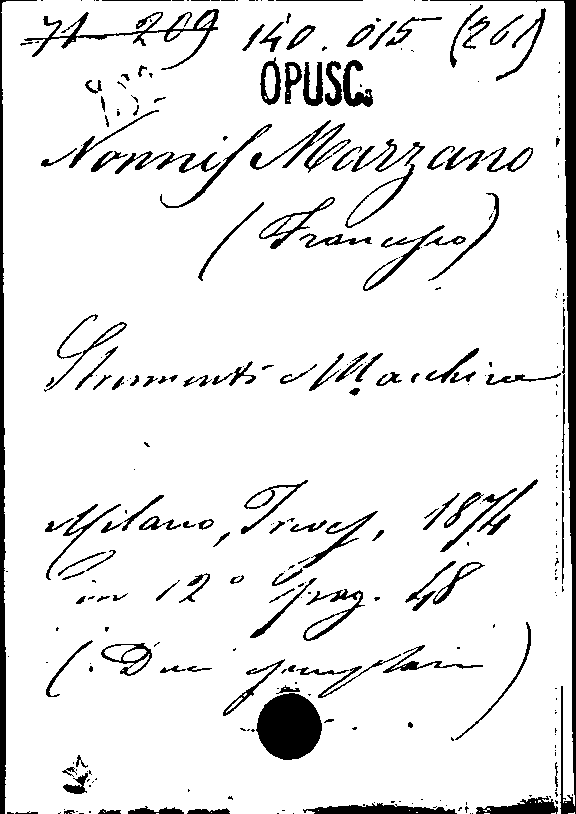 71-209 140.015 (261)
OPUSC.
Nonnis Marzano
(Francesco)
Strumenti e Macchine
Milano, Treves, 1874
in 12° pag. 48
(Due esemplari)